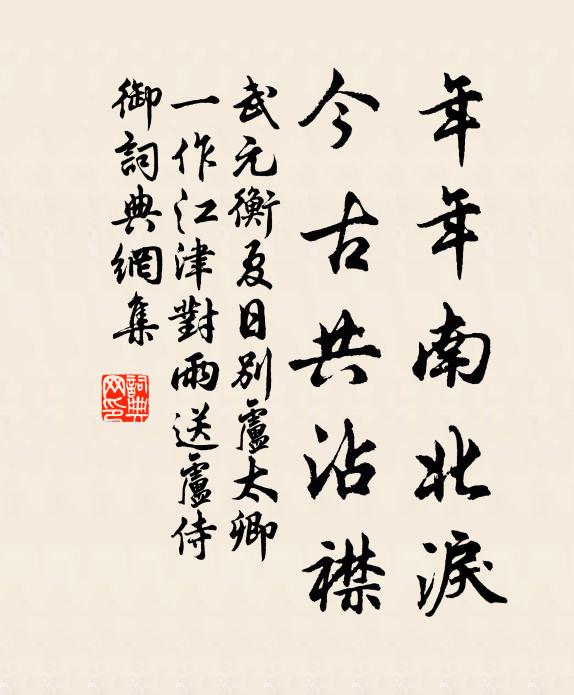 年年南北淚
今古共沾襟
武元衡夏日別盧太卿
一作江津對雨送盧侍
御詞典網集
詞典
网印